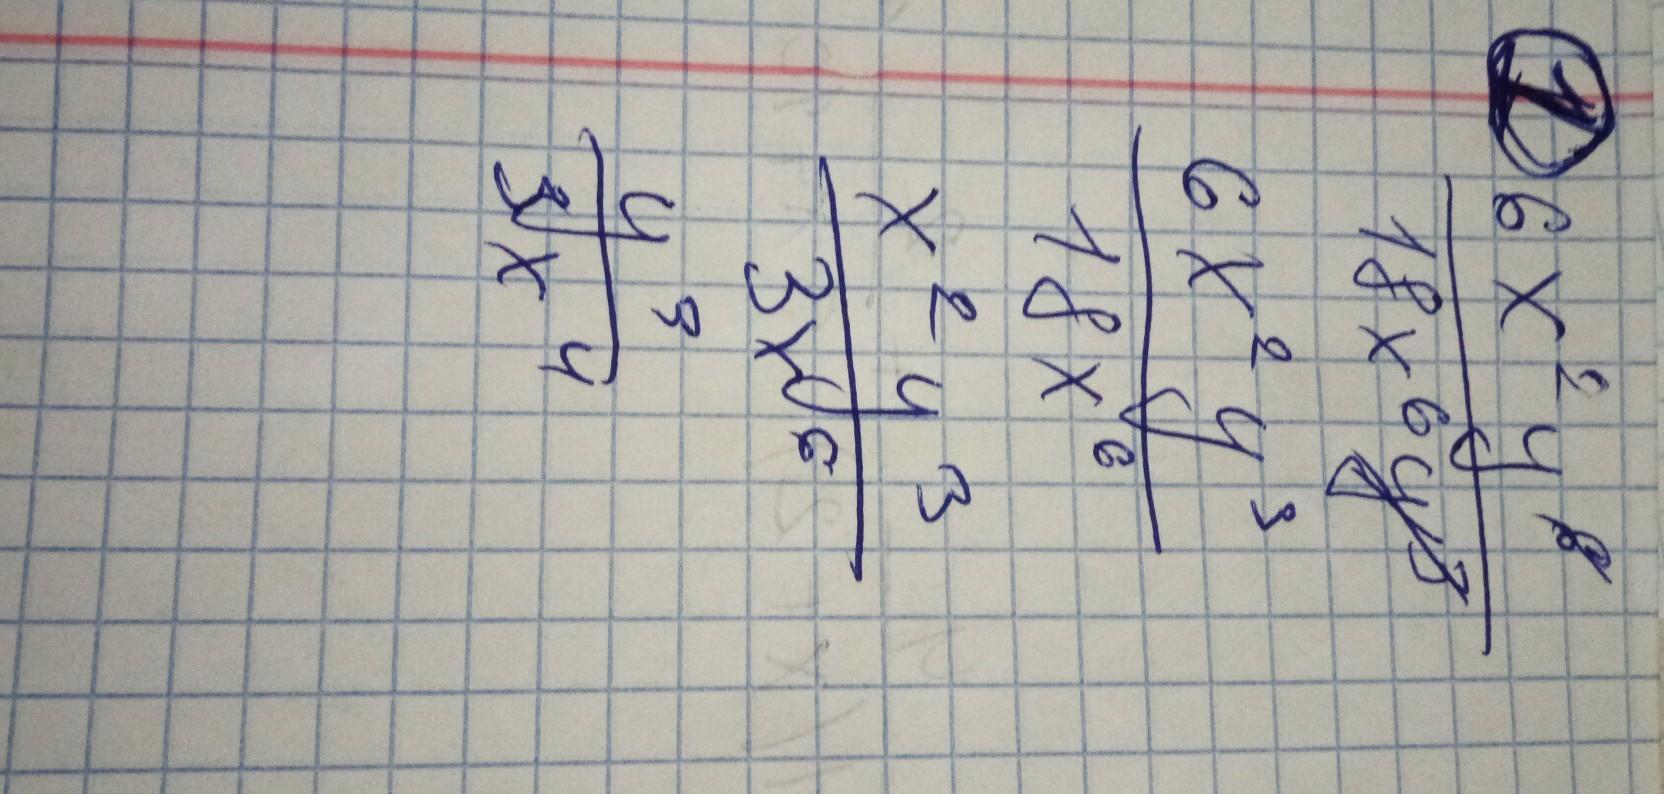 1 6x²y⁶
18x⁶y³
6x²y³
18x⁶
x²y³
3x⁶
y³
3x⁴